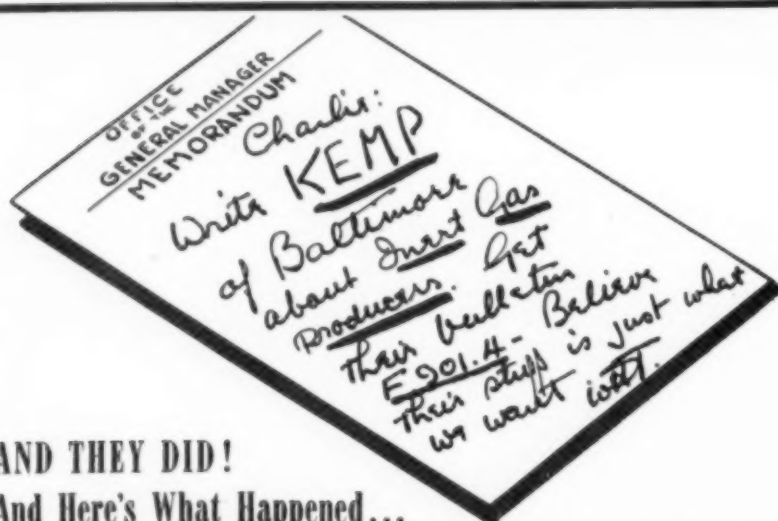 OFFICE
OF THE
GENERAL MANAGER
MEMORANDUM
Charlie:
Write KEMP
of Baltimore
about Inert Gas
Producers. Get
their bulletin
E201.4 - Believe
their stuff is just what
we want
AND THEY DID!
And Here's What Happened...